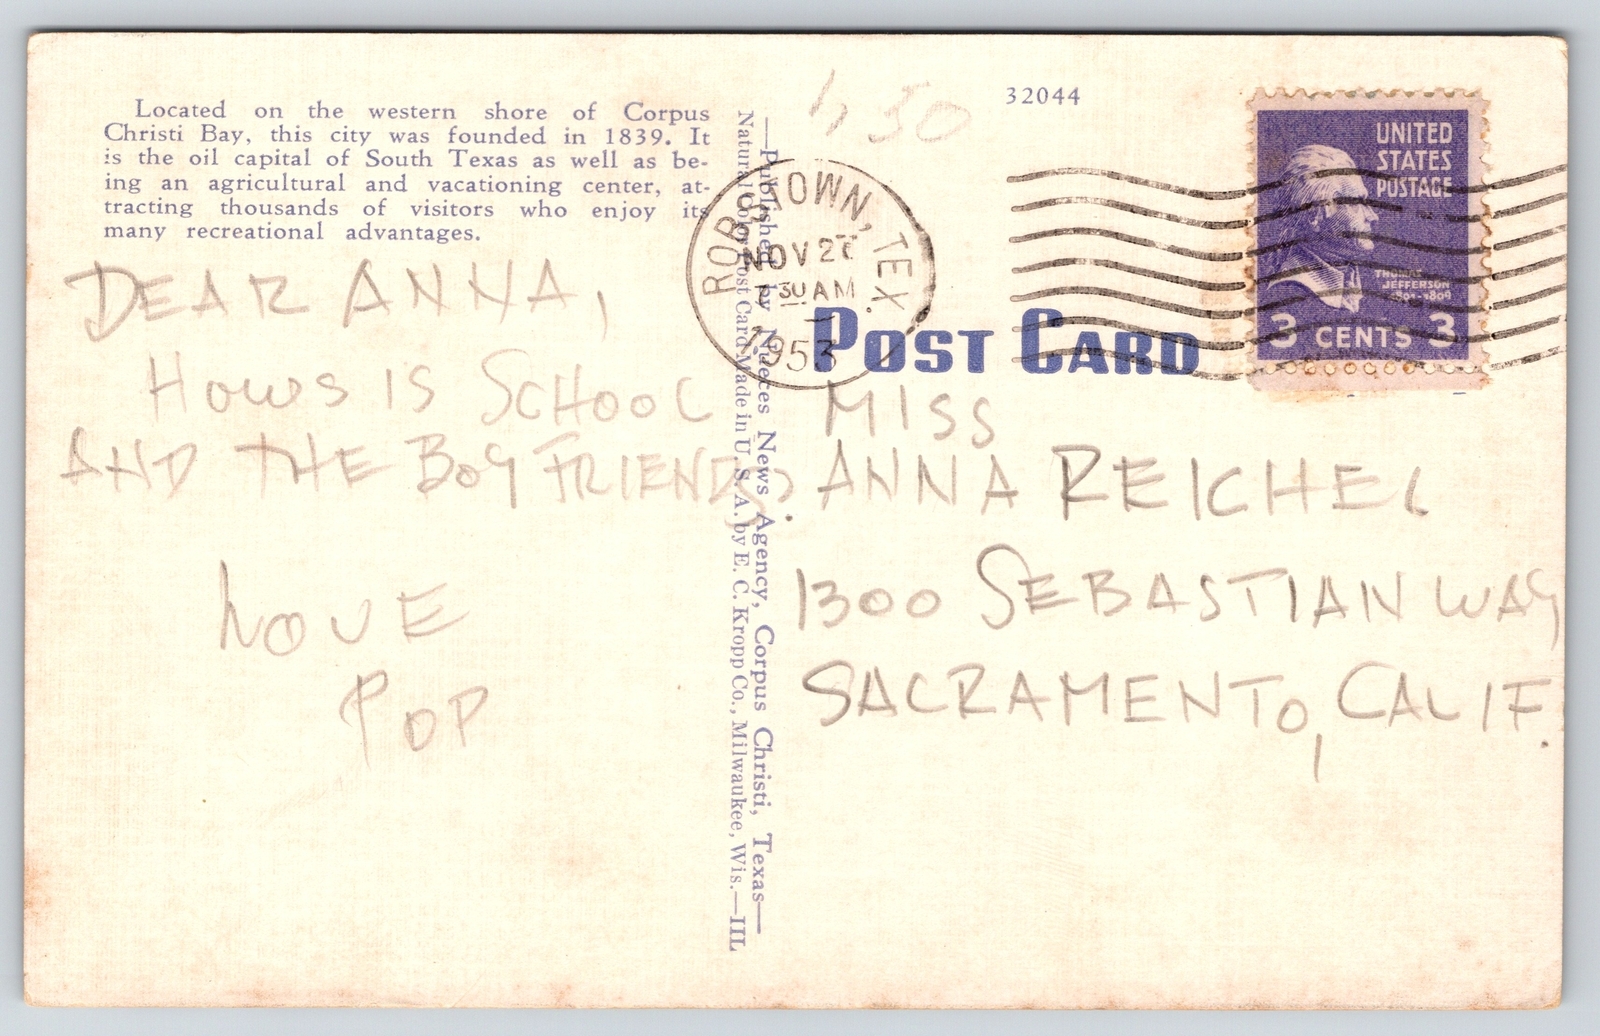 Located on the western shore of Corpus
Christi Bay, this city was founded in 1839. It
is the oil capital of South Texas as well as be-
ing an agricultural and vacationing center, at-
tracting thousands of visitors who enjoy its
many recreational advantages.
DEAR ANNA,
HOWS IS SCHOOL
AND THE BOY FRIENDS?
LOVE
POP
—Published by Nueces News Agency, Corpus Christi, Texas—
Natural Color Post Card Made in U. S. A. by E. C. Kropp Co., Milwaukee, Wis.—III
50
32044
ROBSTOWN, TEX.
NOV 2
30 AM
1953
UNITED
STATES
POSTAGE
THOMAS
JEFFERSON
1801-1809
3 CENTS 3
POST CARD
MISS
ANNA REICHEL
1300 SEBASTIAN WAY
SACRAMENTO, CALIF.